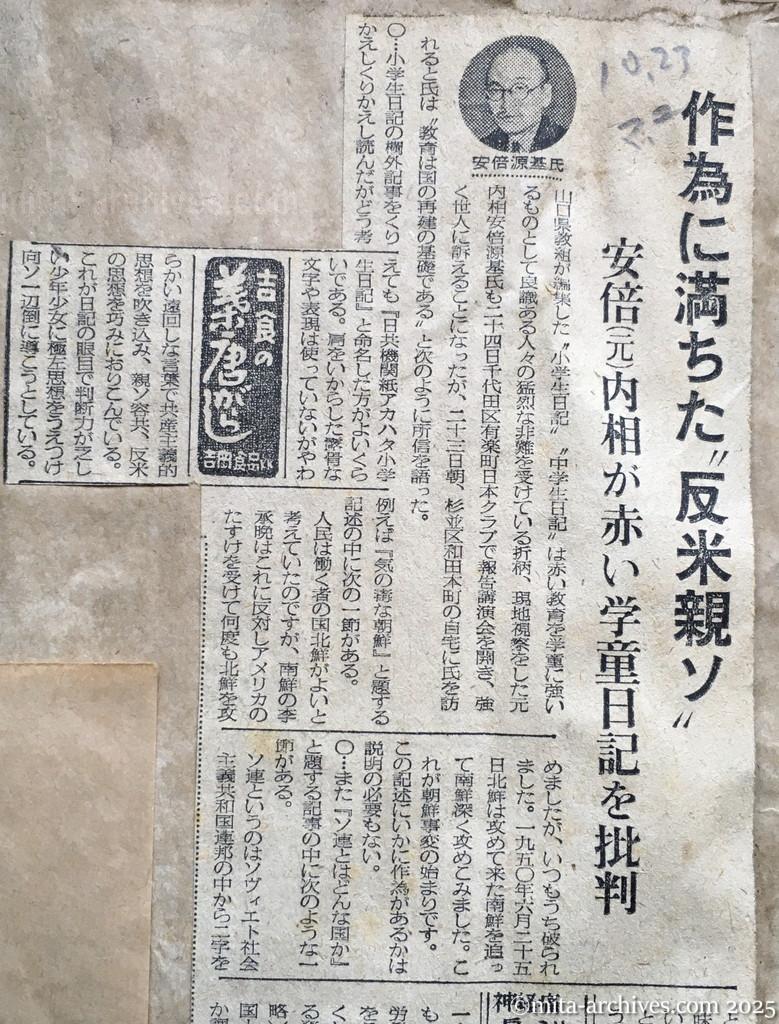 10.23
作為に満ちた〝反米親ソ〟
安倍(元)内相が赤い学童日記を批判
安倍源基氏
山口県教組が編集した〝小学生日記〟〝中学生日記〟は赤い教育を学童に強い
るものとして良識ある人々の猛烈な非難を受けている折柄、現地視察をした元
内相安倍源基氏も二十四日千代田区有楽町日本クラブで報告講演会を開き、強
く世人に訴えることになったが、二十三日朝、杉並区和田本町の自宅に氏を訪
れると氏は〝教育は国の再建の基礎である〟と次のように所信を語った。
〇…小学生日記の欄外記事をくり
かえしくりかえし読んだがどう考
えても『日共機関紙アカハタ小学
生日記』と命名した方がよいくら
いである。肩をいからした露骨な
文字や表現は使っていないがやわ
吉良の
薬唐がらし
吉岡食品KK
らかい遠回しな言葉で共産主義的
思想を吹き込み、親ソ容共、反米
の思想を巧みにおりこんでいる。
これが日記の眼目で判断力が乏し
い少年少女に極左思想をうえつけ
向ソ一辺倒に導こうとしている。
例えば『気の毒な朝鮮』と題する
記述の中に次の一節がある。
人民は働く者の国北鮮がよいと
考えていたのですが、南鮮の李
承晩はこれに反対しアメリカの
たすけを受けて何度も北鮮を攻
めましたが、いつもうち破られ
ました。一九五〇年六月二十五
日北鮮は攻めて来た南鮮を追っ
て南鮮深く攻めこみました。こ
れが朝鮮事変の始まりです。
この記述にいかに作為があるかは
説明の必要もない。
〇…また『ソ連とはどんな国か』
と題する記事の中に次のような一
節がある。
ソ連というのはソヴィエト社会
主義共和国連邦の中から二字を
©mita-archives.com 2025